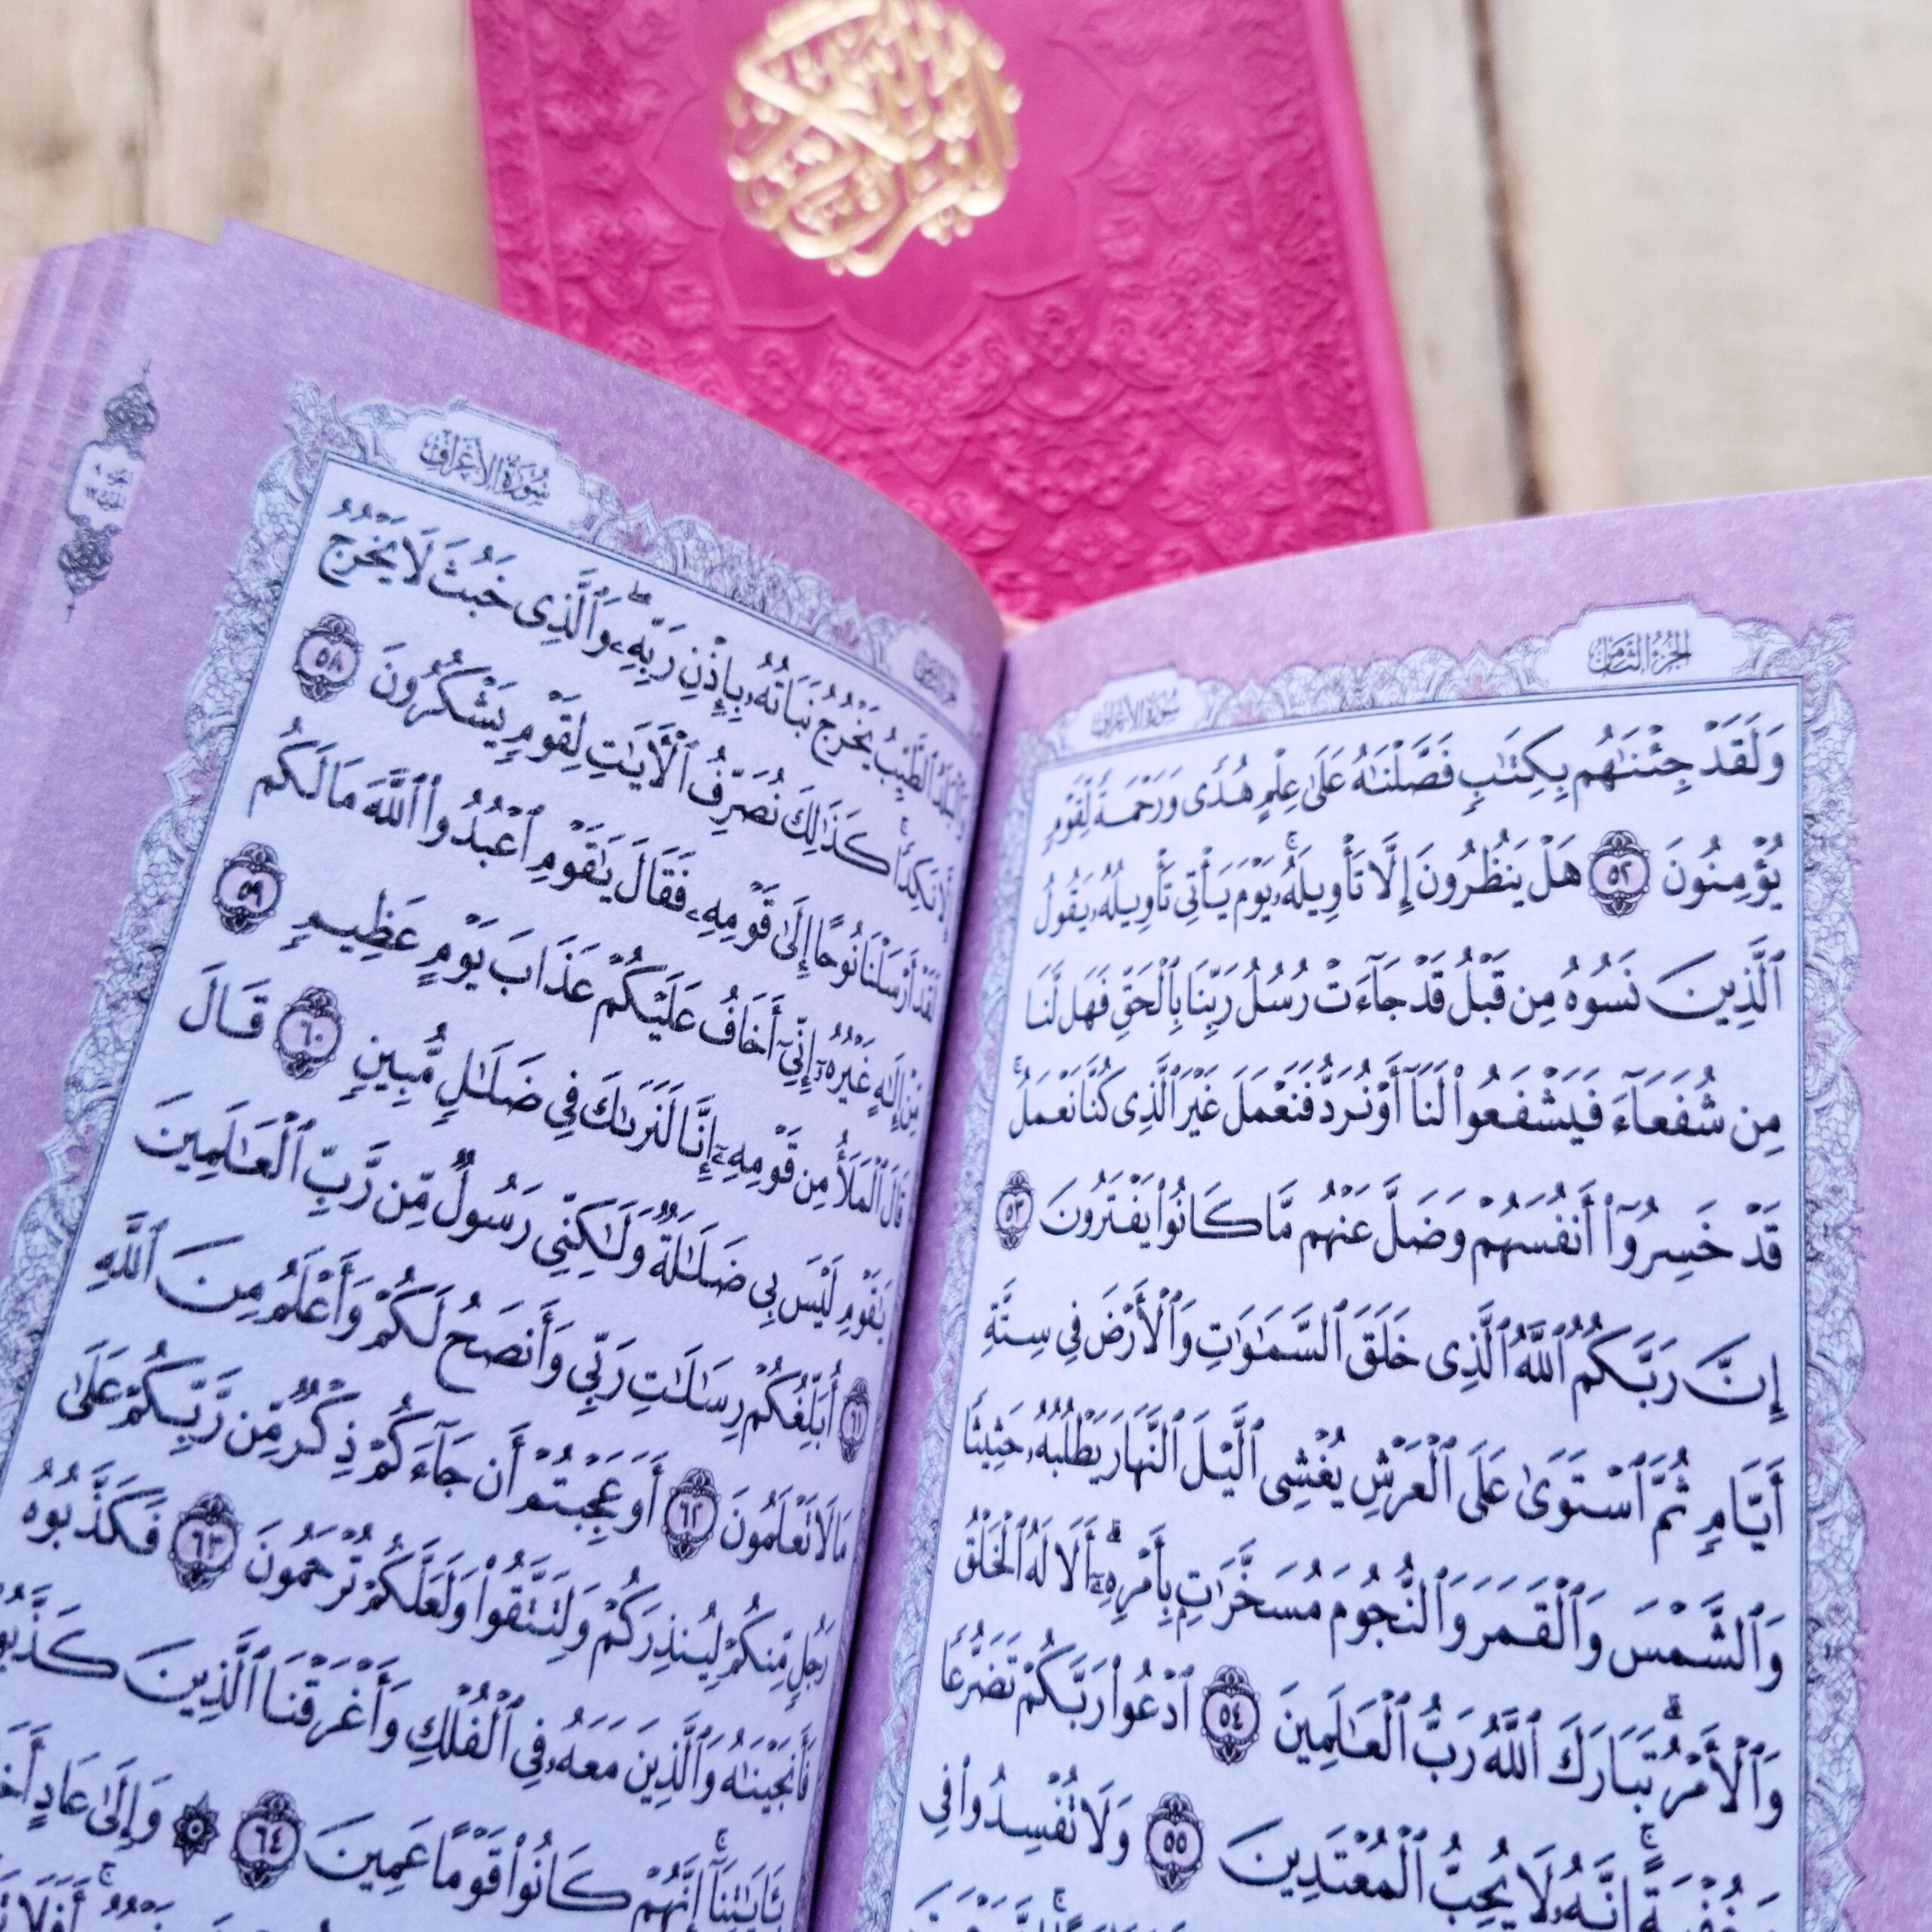 الجزء الثامن
سورة الأعراف
وَلَقَدْ جِئْنَٰهُم بِكِتَٰبٍ فَصَّلْنَٰهُ عَلَىٰ عِلْمٍ هُدًى وَرَحْمَةً لِّقَوْمٍ
يُؤْمِنُونَ ٥٢ هَلْ يَنظُرُونَ إِلَّا تَأْوِيلَهُۥ ۚ يَوْمَ يَأْتِى تَأْوِيلُهُۥ يَقُولُ
ٱلَّذِينَ نَسُوهُ مِن قَبْلُ قَدْ جَآءَتْ رُسُلُ رَبِّنَا بِٱلْحَقِّ فَهَل لَّنَا
مِن شُفَعَآءَ فَيَشْفَعُوا۟ لَنَآ أَوْ نُرَدُّ فَنَعْمَلَ غَيْرَ ٱلَّذِى كُنَّا نَعْمَلُ ۚ
قَدْ خَسِرُوٓا۟ أَنفُسَهُمْ وَضَلَّ عَنْهُم مَّا كَانُوا۟ يَفْتَرُونَ ٥٣
إِنَّ رَبَّكُمُ ٱللَّهُ ٱلَّذِى خَلَقَ ٱلسَّمَٰوَٰتِ وَٱلْأَرْضَ فِى سِتَّةِ
أَيَّامٍ ثُمَّ ٱسْتَوَىٰ عَلَى ٱلْعَرْشِ يُغْشِى ٱلَّيْلَ ٱلنَّهَارَ يَطْلُبُهُۥ حَثِيثًا
وَٱلشَّمْسَ وَٱلْقَمَرَ وَٱلنُّجُومَ مُسَخَّرَٰتٍۭ بِأَمْرِهِۦٓ ۗ أَلَا لَهُ ٱلْخَلْقُ
وَٱلْأَمْرُ ۗ تَبَارَكَ ٱللَّهُ رَبُّ ٱلْعَٰلَمِينَ ٥٤ ٱدْعُوا۟ رَبَّكُمْ تَضَرُّعًا
وَخُفْيَةً ۚ إِنَّهُۥ لَا يُحِبُّ ٱلْمُعْتَدِينَ ٥٥ وَلَا تُفْسِدُوا۟ فِى
سورة الأعراف
وَٱلْبَلَدُ ٱلطَّيِّبُ يَخْرُجُ نَبَاتُهُۥ بِإِذْنِ رَبِّهِۦ ۖ وَٱلَّذِى خَبُثَ لَا يَخْرُجُ
إِلَّا نَكِدًا ۚ كَذَٰلِكَ نُصَرِّفُ ٱلْءَايَٰتِ لِقَوْمٍ يَشْكُرُونَ ٥٨
لَقَدْ أَرْسَلْنَا نُوحًا إِلَىٰ قَوْمِهِۦ فَقَالَ يَٰقَوْمِ ٱعْبُدُوا۟ ٱللَّهَ مَا لَكُم
مِّنْ إِلَٰهٍ غَيْرُهُۥٓ إِنِّىٓ أَخَافُ عَلَيْكُمْ عَذَابَ يَوْمٍ عَظِيمٍ ٥٩
قَالَ ٱلْمَلَأُ مِن قَوْمِهِۦٓ إِنَّا لَنَرَىٰكَ فِى ضَلَٰلٍ مُّبِينٍ ٦٠ قَالَ
يَٰقَوْمِ لَيْسَ بِى ضَلَٰلَةٌ وَلَٰكِنِّى رَسُولٌ مِّن رَّبِّ ٱلْعَٰلَمِينَ
٦١ أُبَلِّغُكُمْ رِسَٰلَٰتِ رَبِّى وَأَنصَحُ لَكُمْ وَأَعْلَمُ مِنَ ٱللَّهِ
مَا لَا تَعْلَمُونَ ٦٢ أَوَعَجِبْتُمْ أَن جَآءَكُمْ ذِكْرٌ مِّن رَّبِّكُمْ عَلَىٰ
رَجُلٍ مِّنكُمْ لِيُنذِرَكُمْ وَلِتَتَّقُوا۟ وَلَعَلَّكُمْ تُرْحَمُونَ ٦٣ فَكَذَّبُوهُ
فَأَنجَيْنَٰهُ وَٱلَّذِينَ مَعَهُۥ فِى ٱلْفُلْكِ وَأَغْرَقْنَا ٱلَّذِينَ كَذَّبُوا۟
بِـَٔايَٰتِنَآ ۚ إِنَّهُمْ كَانُوا۟ قَوْمًا عَمِينَ ٦٤ وَإِلَىٰ عَادٍ